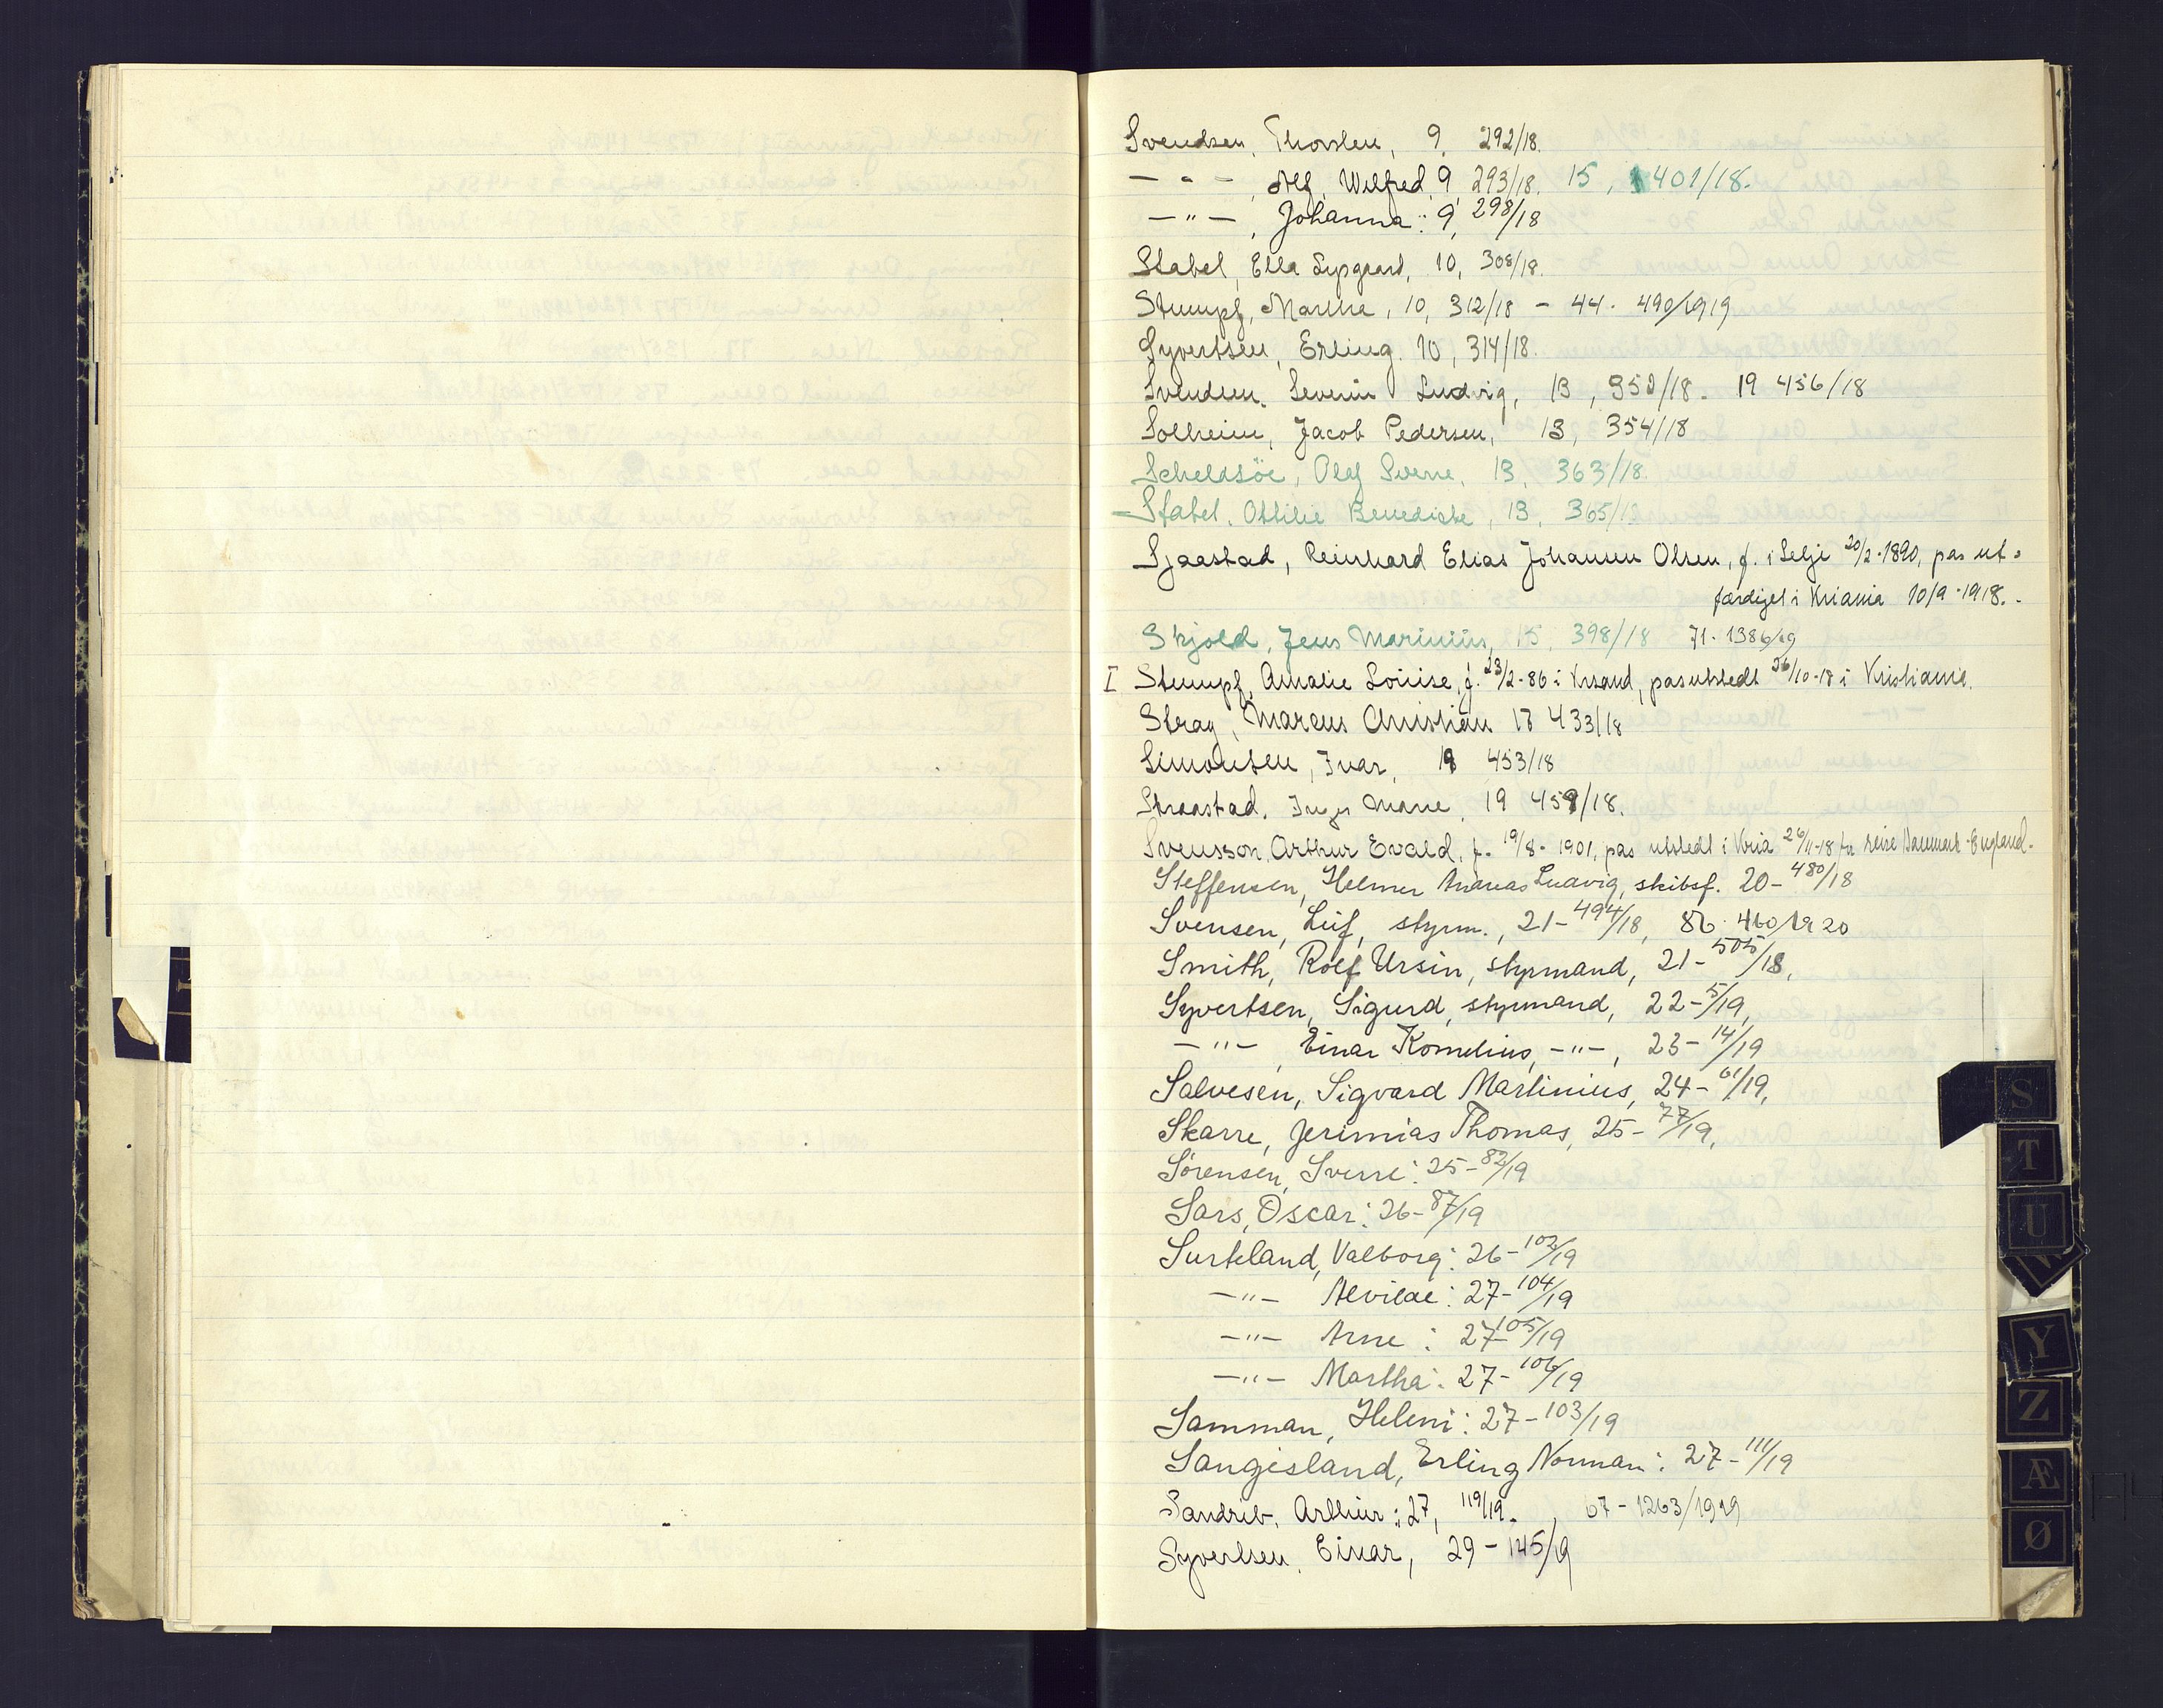 Svendsen, Thorslen, 9. 292/18.
— " — , Alf, Wilfred, 9, 293/18. 15, 401/18.
— " — , Johanna: 9, 298/18
Stabel, Ella 10, 308/18.
Stumpf, Martha, 10, 312/18 – 44. 490/1919
Syvertsen, Erling. 10, 314/18.
Svendsen. Severin Ludvig, 13, 352/18. 19 456/18
Solheim, Jacob Pedersen, 13, 354/18
Scheldsöe, Olef Sverre, 13, 363/18.
Stabel. Ottilie Benedicte, 13, 365/18
Sjaastad, Reinhard Elias Johansen Olsen, f. i Selje 20/2-1890, pas ut-
færdiget i Kriania 10/9-1918.
Skjold, Jens Marinius, 15, 398/18 71. 1386/19
I Stumpf, Amalie Louise, f. 23/2-86 i Krsand, pas utstedt 26/10-18 i Kristiania.
Stray, Marcus Christian 18 433/18
Simonsen, Ivar, 19 453/18
Straastad. Inger Marie, 19 459/18.
Svensson, Arthur Evald, f. 19/8-1901, pas utstedt i Kria 26/11-18 for reise Danmark-England.
Steffensen, Helmer Andreas Ludvig, skibsf. 20-480/18
Svensen, Leif, styrm., 21-494/18, 86. 460/1920
Smith, Rolf Ursin, styrmand, 21-505/18,
Syvertsen, Sigurd, styrmand, 22-5/19,
— " — , Einar Kornelius, — " — , 23-14/19
Salvesen, Sigvard Martinius, 24-61/19,
Skarre, Jerimias Thomas, 25-77/19,
Sörensen, Sverre: 25-82/19
Sars, Oscar: 26-87/19
Surteland, Valborg: 26-102/19
— " — Alvilde: 27-104/19
— " — Arne: 27-105/19
— " — Martha: 27-106/19
Samman, Heleni: 27-103/19
Sangesland, Erling Norman: 27-111/19
Sandrib, Arthur: 27, 119/19. , 67-1263/1919
Syvertsen. Einar, 29-145/19
S
T
U
W
Y
Z
Æ
Ø